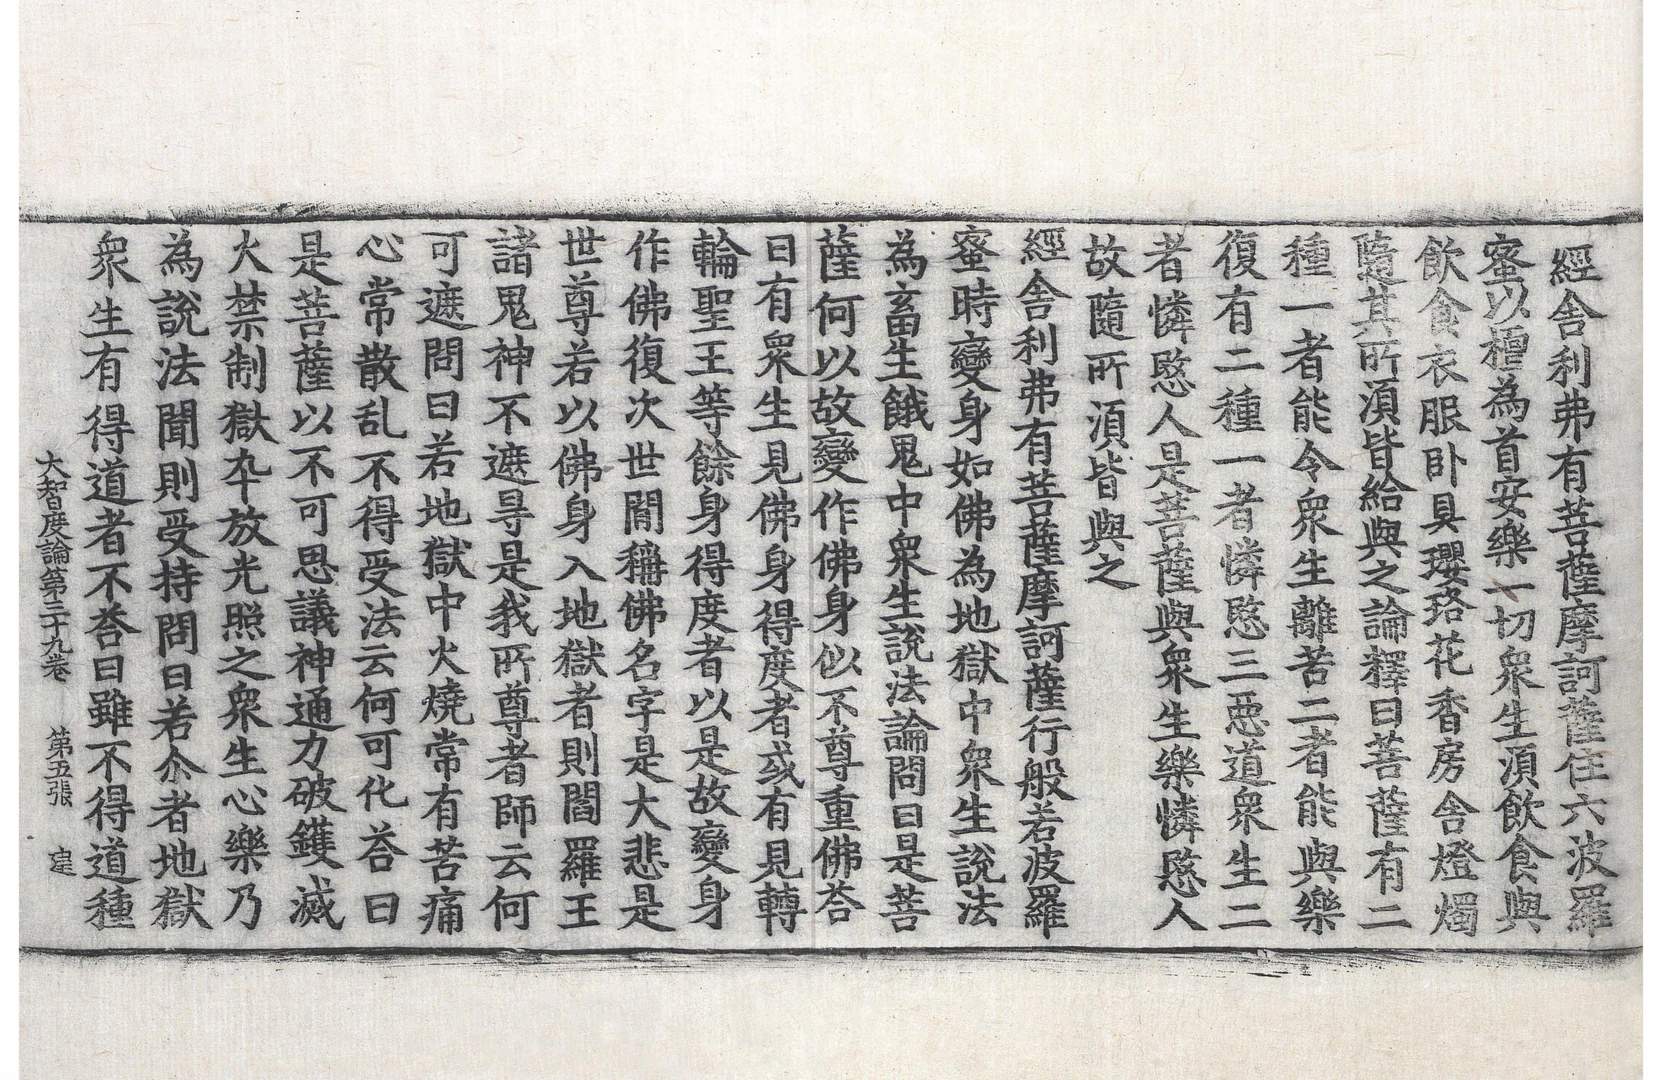 經舍利弗有菩薩摩訶薩住六波羅
蜜以檀為首安樂一切衆生湏飲食與
飲食衣服卧具瓔珞花香房舍燈燭
隨其所湏皆給與之論釋曰菩薩有二
種一者能令衆生離苦二者能與樂
復有二種一者憐愍三惡道衆生二
者憐愍人是菩薩與衆生樂憐愍人
故隨所湏皆與之
經舍利弗有菩薩摩訶薩行般若波羅
蜜時變身如佛為地獄中衆生說法
為畜生餓鬼中衆生說法論問曰是菩
薩何以故變作佛身似不尊重佛荅
曰有衆生見佛身得度者或有見轉
輪聖王等餘身得度者以是故變身
作佛復次世閒稱佛名字是大悲是
世尊若以佛身入地獄者則閻羅王
諸鬼神不遮㝵是我所尊者師云何
可遮問曰若地獄中火燒常有苦痛
心常散乱不得受法云何可化荅曰
是菩薩以不可思議神通力破鑊滅
火禁制獄卒放光照之衆生心樂乃
為說法聞則受持問曰若尒者地獄
衆生有得道者不荅曰雖不得道種
大智度論第三十九卷 第五張 定